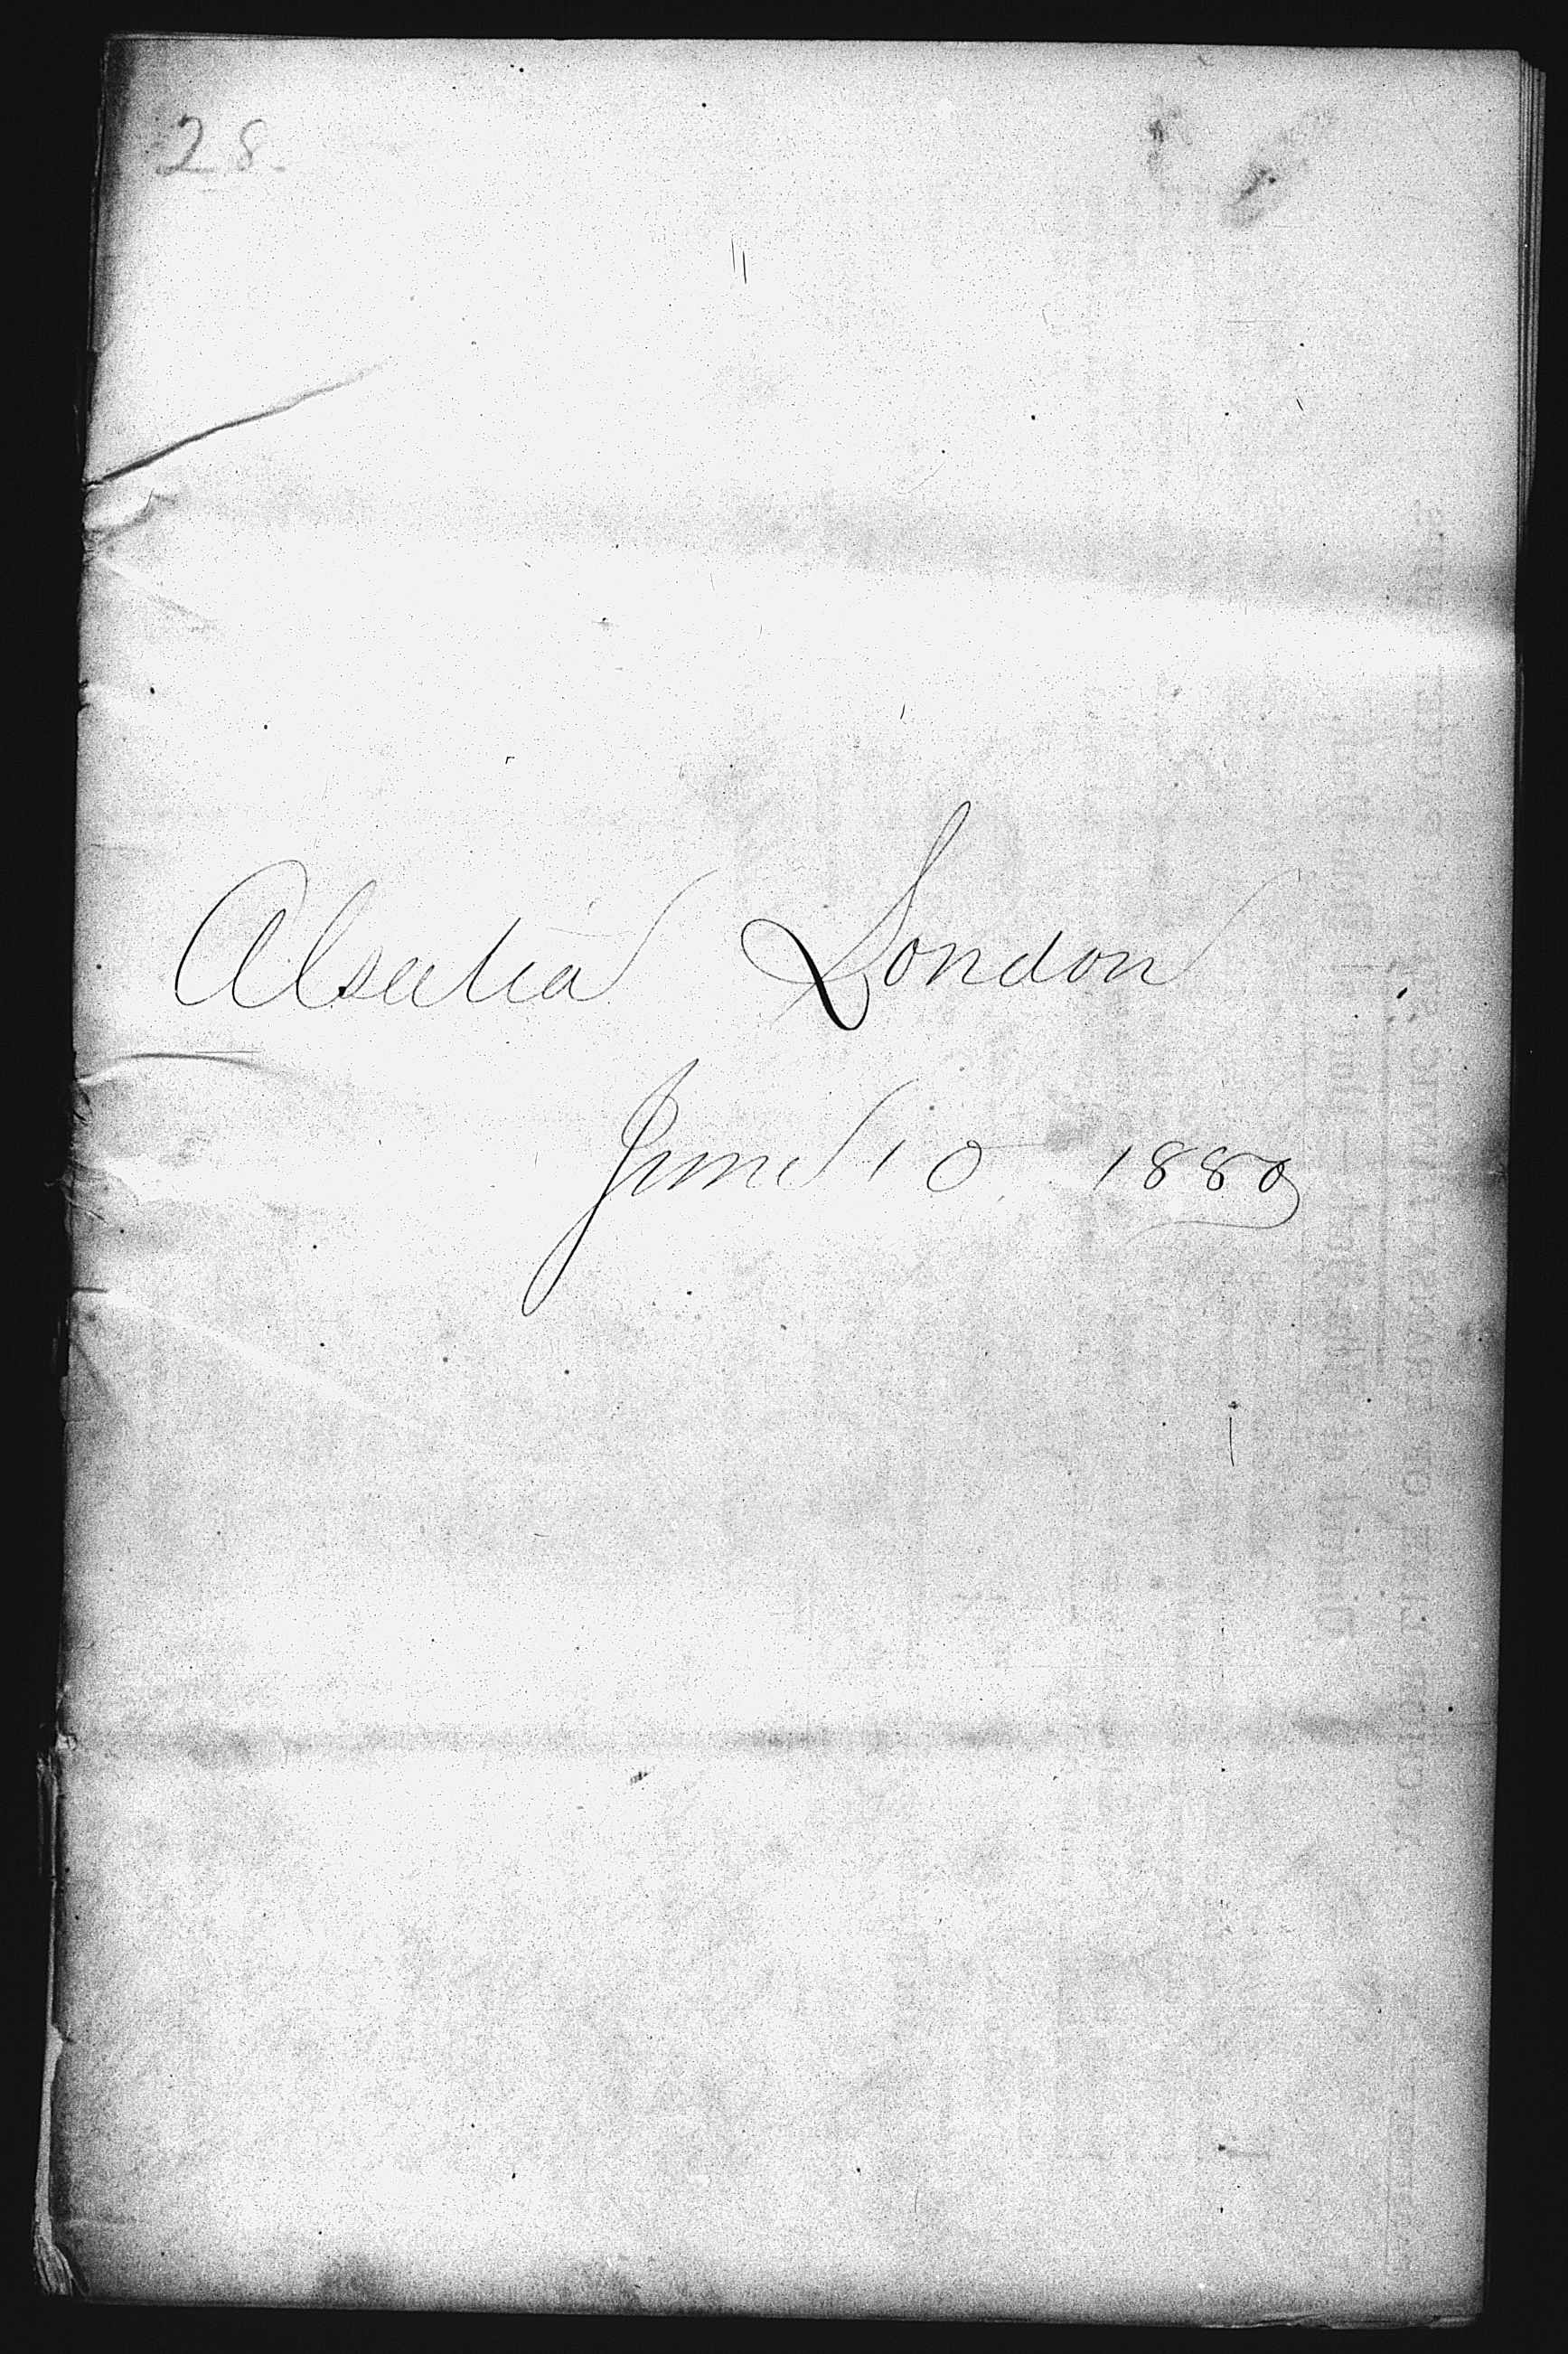 28
Alsatia London
June 10 1880